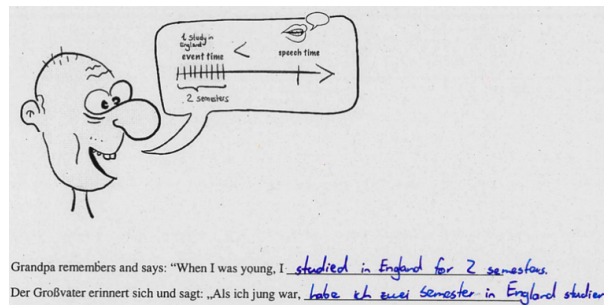 1 study in
England
event time
<
speech time
2 semesters
Grandpa remembers and says: “When I was young, I studied in England for 2 semesters.
Der Großvater erinnert sich und sagt: „Als ich jung war, habe ich zwei Semester in England studier